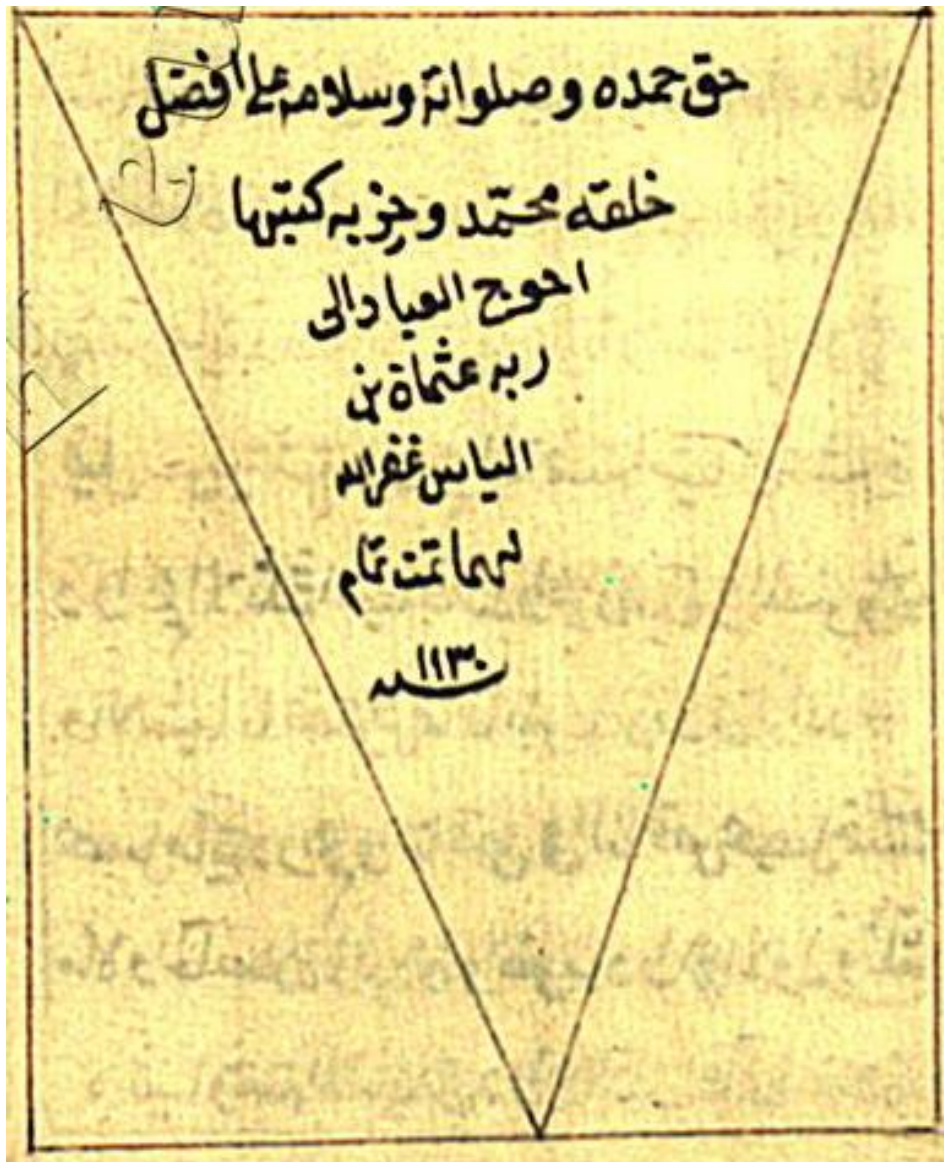 حق حمده وصلواته وسلامه على افضل
خلقه محمّد وحزبه كتبها
احوج العباد الى
ربه عثمان بن
الياس غفر الله
لهما تمت تمام
سنه ١١٣٠